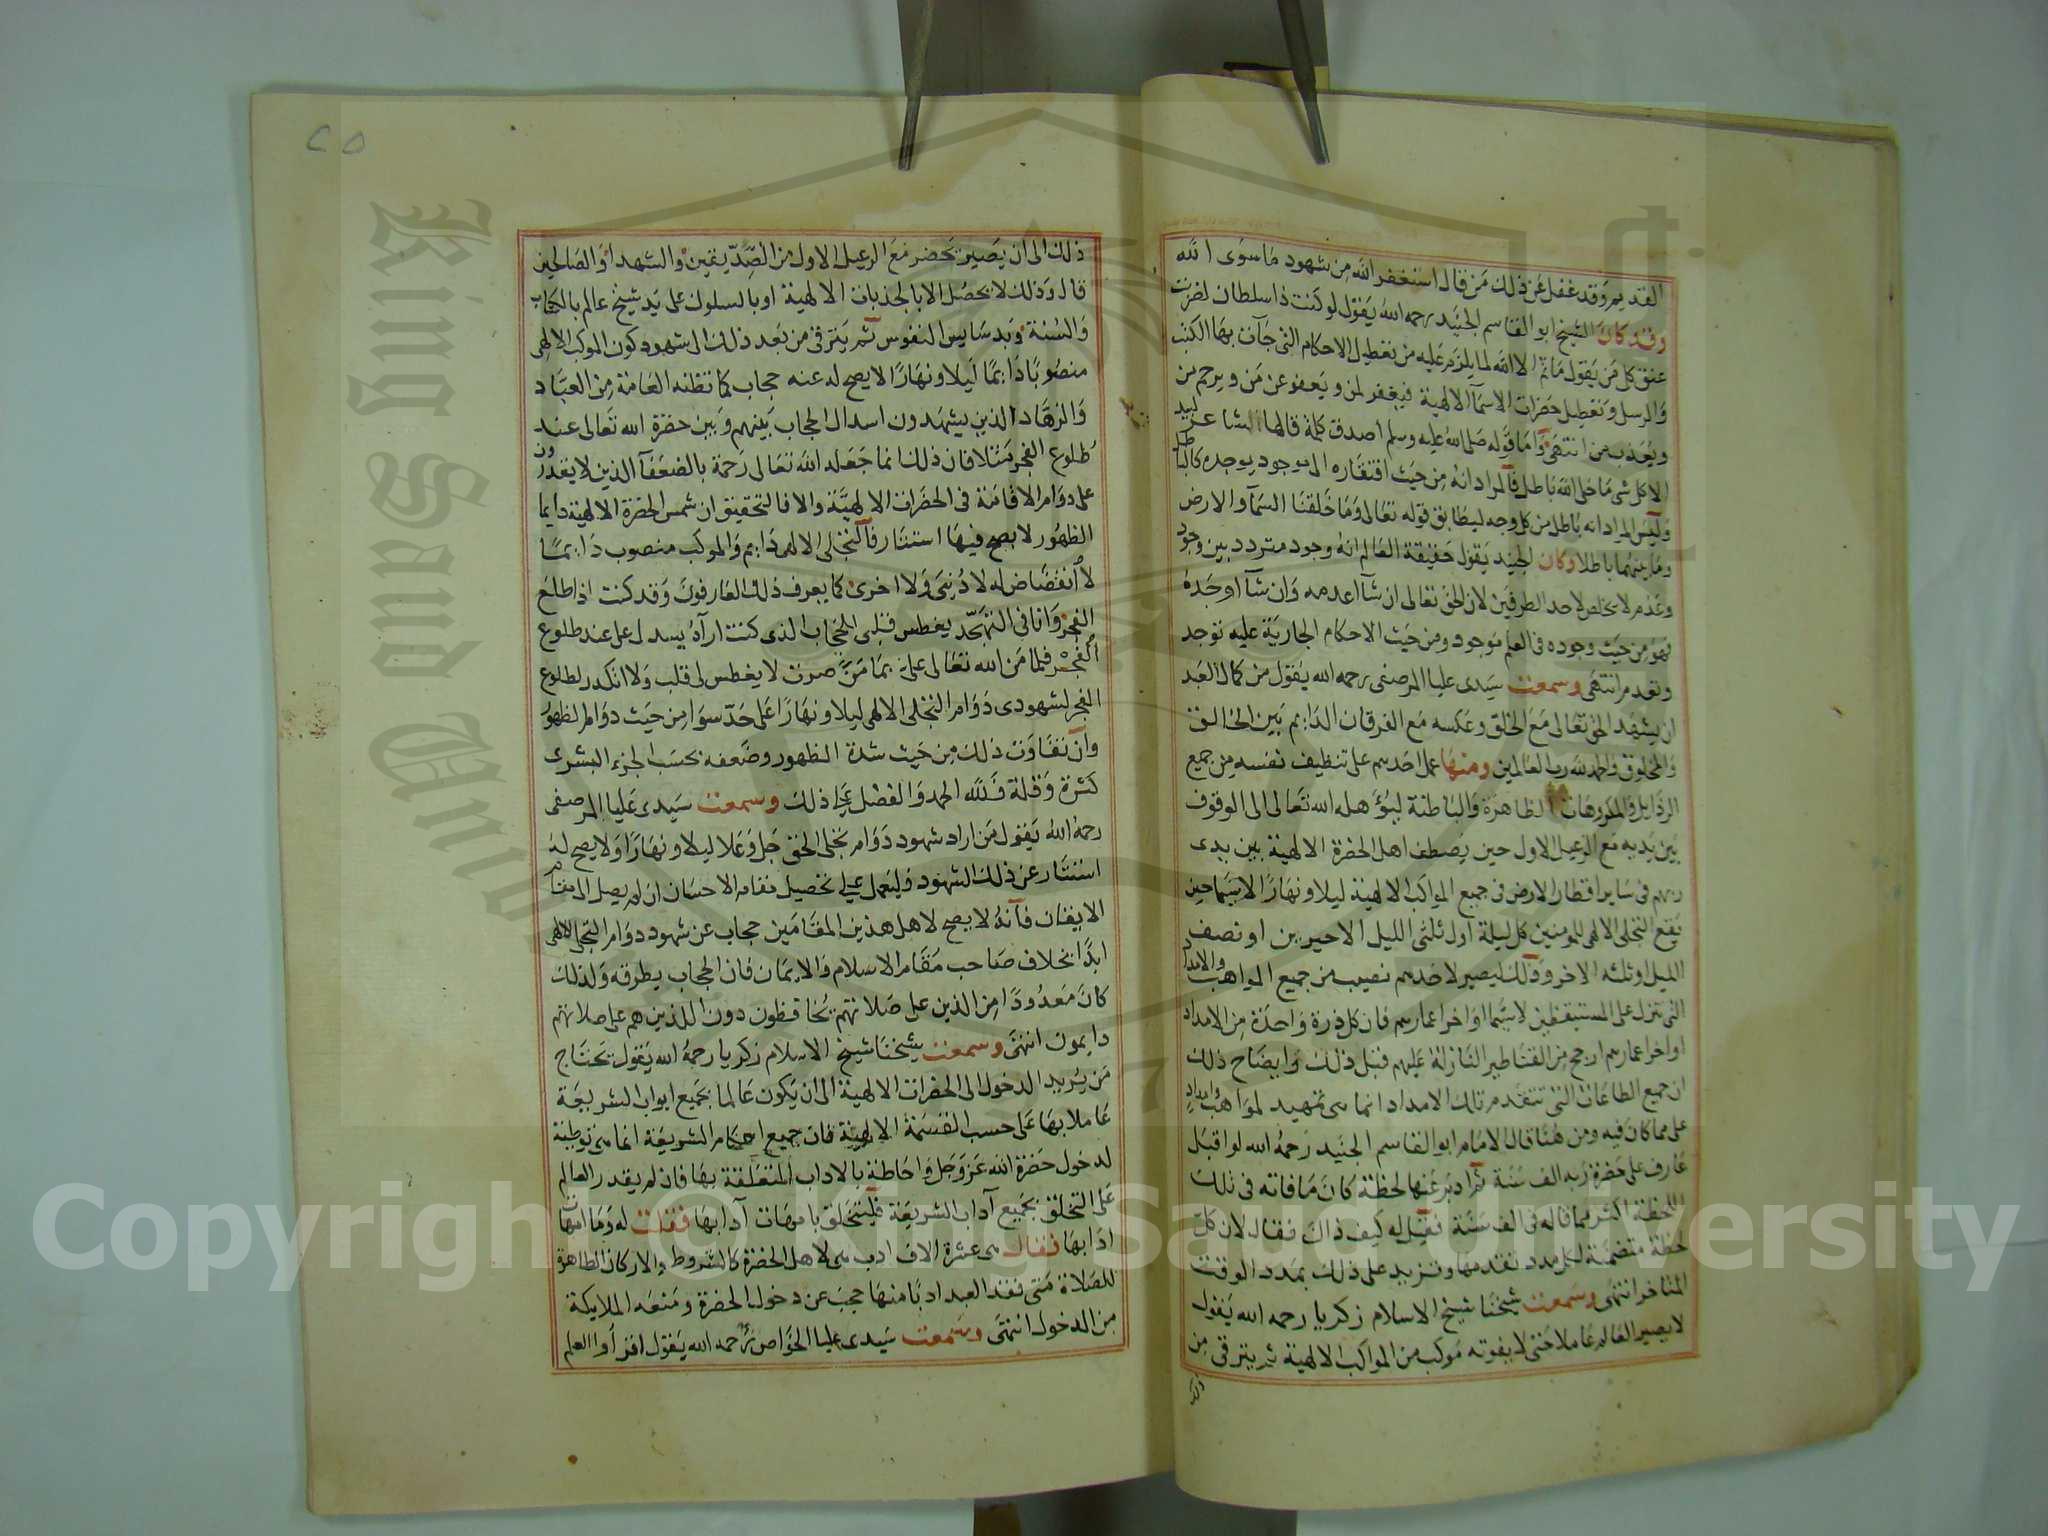 القديم وقد غفل عن ذلك من قال استغفر الله من شهود ما سوى الله
وقد كان الشيخ ابو القاسم الجنيد رحمه الله يقول لو كنت ذا سلطان لضربت
عنق كل من يقول ما ثم الا الله لما يلزم عليه من تعطيل الاحكام التى جآت بها الكتب
والرسل وتعطيل حضرات الاسمآ الالهية فيغفر لمن ويعفو عن من ويرحم من
ويعذب من انتهى وآما قوله صلى الله عليه وسلم اصدق كلمة قالها الشاعر لبيد
الا كل شى ما خلى الله باطل فالمراد انه من حيث افتقاره الى موجود يوجده كالباطل
وليس المراد انه باطل من كل وجه ليطابق قوله تعالى وما خلقنا السمآ والارض
وما بينهما باطلا وكان الجنيد يقول حقيقة العالم انه وجود متردد بين وجود
وعدم لا يخلص لاحد الطرفين لان الحق تعالى ان شآ اعدمه وان شآ اوجده
فهو من حيث وجوده فى العلم موجود ومن حيث الاحكام الجارية عليه توجد
وتعدم انتهى وسمعت سيدى عليا المرصفى رحمه الله يقول من كمال العبد
ان يشهد الحق تعالى مع الخلق وعكسه مع الفرقان الدايم بين الخالق
والمخلوق والحمد لله رب العالمين ومنها عمل احدهم على تنظيف نفسه من جميع
الرذايل والمكروهات الظاهرة والباطنة ليؤهله الله تعالى الى الوقوف
بين يديه مع الرعيل الاول حين يصطف اهل الحضرة الالهية بين يدى
ربهم فى ساير اقطار الارض فى جميع المواكب الالهية ليلا ونهارًا لاسيما حين
يقع التجلى الالهى للمومنين كل ليلة اول ثلثى الليل الاخيرين او نصف
الليل او ثلثه الاخر وذلك ليصير لاحدهم نصيب من جميع المواهب والامداد
التى تنزل على المستيقظين لاسيما اواخر اعمارهم فان كل ذرة واحدة من الامداد
اواخر اعمارهم ارجح من القناطير النازلة عليهم قبل ذلك وايضاح ذلك
ان جميع الطاعات التى تتقدم تلك الامداد انما هى تمهيد لمواهب وامداد
على مما كان فيه ومن هنا قال الامام ابو القاسم الجنيد رحمه الله لو اقبل
عارف على حضرة ربه الف سنة ثم ادبر عنها لحظة كان ما فاته فى تلك
اللحظة اكثر مما ناله فى الف سنة فقيل له كيف ذاك فقال لان كل
لحظة متضمنة لكل مدد تقدمها وتزيد على ذلك بمدد الوقت
المتاخر انتهى وسمعت شيخنا شيخ الاسلام زكريا رحمه الله يقول
لا يصير العالم عاملا حتى لا يفوته موكب من المواكب الالهية ثم يترقى من
ذلك
٢٥
ذلك الى ان يصير يحضر مع الرعيل الاول من الصديقين والشهدا والصالحين
قال وذلك لا يحصل الا بالجذبات الالهية او بالسلوك على يد شيخ عالم بالكتاب
والسنة وبدسايس النفوس ثم يترقى من بعد ذلك الى شهود كون الموكب الالهى
منصوبًا دايمًا ليلا ونهارًا لا يصح له عنه حجاب كما تظنه العامة من العباد
والزهاد الذين يشهدون اسدال الحجاب بينهم وبين حضرة الله تعالى عند
طلوع الفجر مثلا فان ذلك انما جعله الله تعالى رحمة بالضعفآ الذين لا يقدرون
على دوام الاقامة فى الحضرات الالهية والا فالتحقيق ان شمس الحضرة الالهية دايما
الظهور لا يصح فيها استتار فالتجلى الالهى دايم والموكب منصوب دايمًا
لا انقضاض له لا دنيى ولا اخرى كما يعرف ذلك العارفون وقد كنت اذا طلع
الفجر وانا فى التهجد يغطس قلبى للحجاب الذى كنت اراه يسدل على عند طلوع
الفجر فلما من الله تعالى على بما من صرت لا يغطس لى قلب ولا انكدر لطلوع
الفجر لشهودى دوام التجلى الالهى ليلا ونهارًا على حد سوا من حيث دوام الظهور
وان تفاوت ذلك من حيث شدة الظهور وضعفه بحسب الجزء البشرى
كثرة وقلة فلله الحمد والفضل على ذلك وسمعت سيدى عليا المرصفى
رحمه الله يقول من اراد شهود دوام تجلى الحق جل وعلا ليلا ونهارًا ولا يصح له
استتار عن ذلك الشهود فليعمل على تحصيل مقام الاحسان ان لم يصل الى مقام
الايقان فانه لا يصح لاهل هذين المقامين حجاب عن شهود دوام التجلى الالهى
ابدًا بخلاف صاحب مقام الاسلام والايمان فان الحجاب يطرقه ولذلك
كان معدودًا من الذين على صلاتهم يحافظون دون الذين هم على صلاتهم
دايمون انتهى وسمعت شيخنا شيخ الاسلام زكريا رحمه الله يقول يحتاج
من يريد الدخول الى الحضرات الالهية الى ان يكون عالما بجميع ابواب الشريعة
عاملا بها على حسب القسمة الالهية فان جميع احكام الشريعة انما هى توطية
لدخول حضرة الله عز وجل واحاطة بالاداب المتعلقة بها فان لم يقدر العالم
على التخلق بجميع آداب الشريعة فليتخلق بامهات آدابها فقلت له وما امهات
ادابها فقال هى عشرة الاف ادب هى لاهل الحضرة كالشروط والاركان الظاهرة
للصلاة متى فقد العبد ادبًا منها حجب عن دخول الحضرة ومنعه الملايكة
من الدخول انتهى وسمعت سيدى عليا الخواص رحمه الله يقول اقراوا العلم